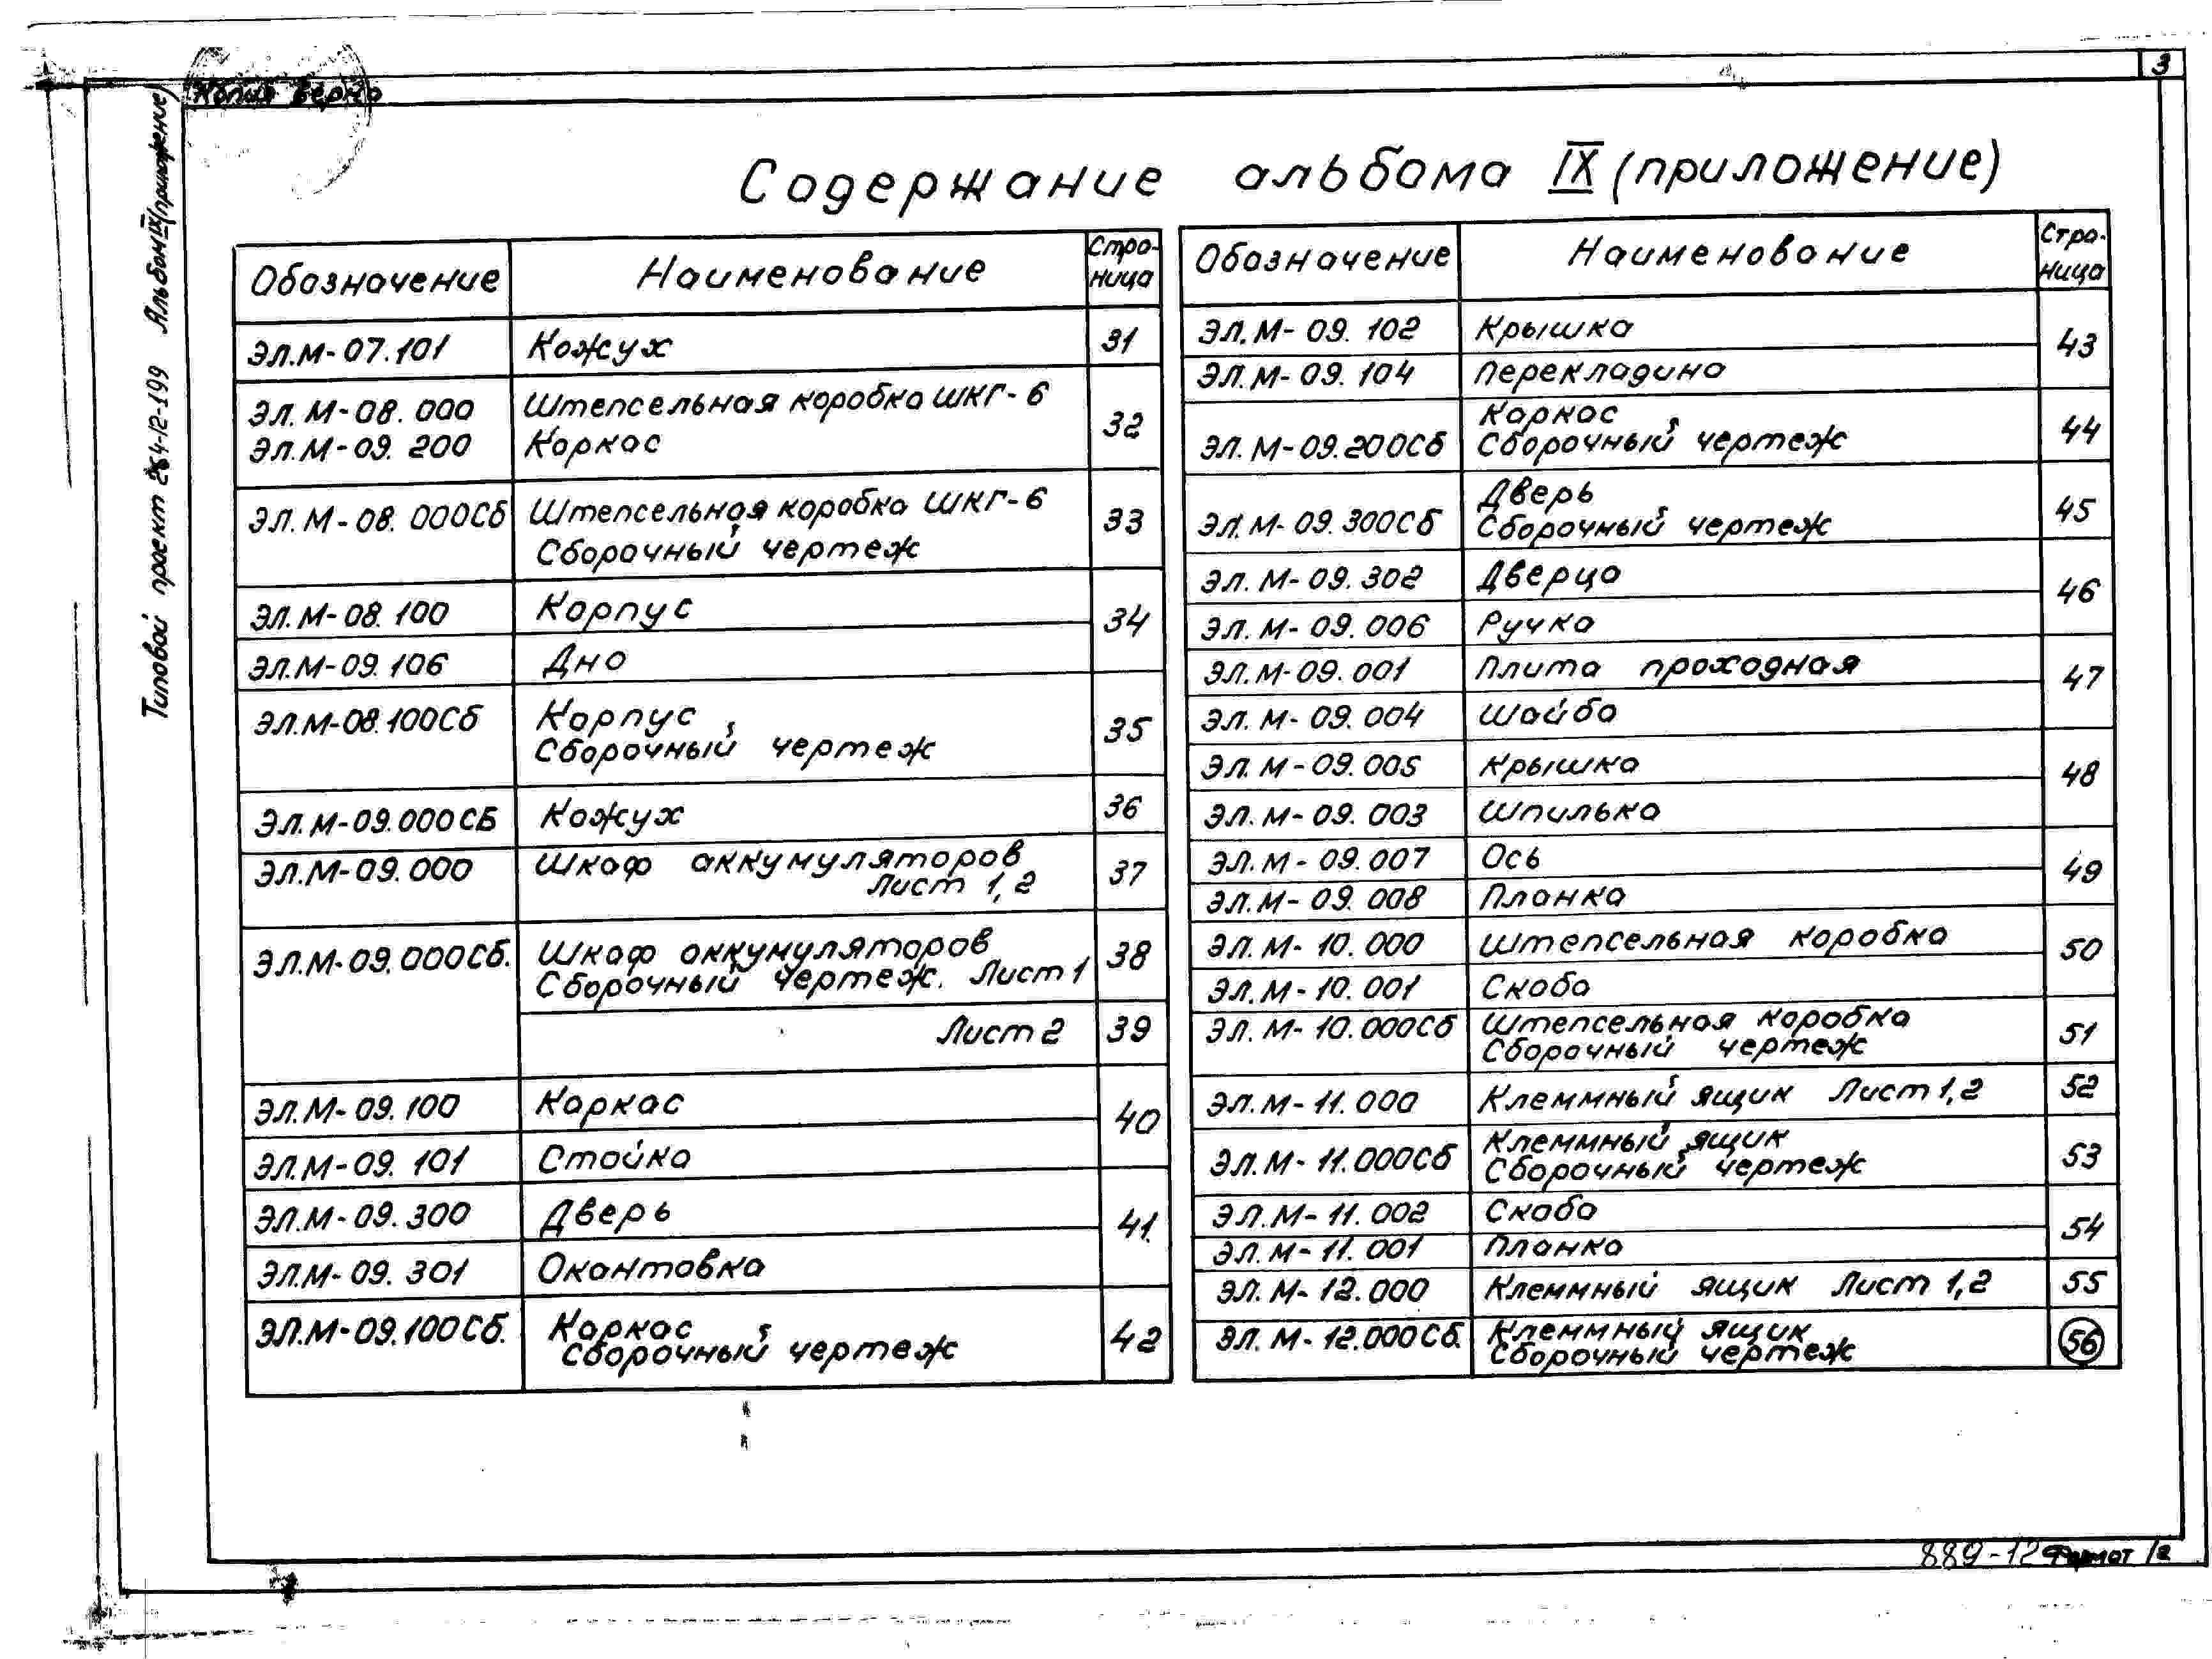 3
Копия верно
Типовой проект 264-12-199 Альбом IX (приложение)
Содержание альбома IX (приложение)
Обозначение Наименование Стра-
ница
ЭЛ.М-07.101 Кожух 31
ЭЛ.М-08.000 Штепсельная коробка ШКГ-6 32
ЭЛ.М-09.200 Каркас
ЭЛ.М-08.000Сб Штепсельная коробка ШКГ-6 33
Сборочный чертеж
ЭЛ.М-08.100 Корпус 34
ЭЛ.М-09.106 Дно
ЭЛ.М-08.100Сб Корпус 35
Сборочный чертеж
ЭЛ.М-09.000СБ Кожух 36
ЭЛ.М-09.000 Шкаф аккумуляторов 37
Лист 1,2
ЭЛ.М-09.000Сб. Шкаф аккумуляторов 38
Сборочный чертеж. Лист 1
Лист 2 39
ЭЛ.М-09.100 Каркас 40
ЭЛ.М-09.101 Стойка
ЭЛ.М-09.300 Дверь 41.
ЭЛ.М-09.301 Окантовка
ЭЛ.М-09.100Сб. Каркас 42
Сборочный чертеж
Обозначение Наименование Стра-
ница
ЭЛ.М-09.102 Крышка 43
ЭЛ.М-09.104 Перекладина
Каркас
ЭЛ.М-09.200Сб Сборочный чертеж 44
Дверь
ЭЛ.М-09.300Сб Сборочный чертеж 45
ЭЛ.М-09.302 Дверца 46
ЭЛ.М-09.006 Ручка
ЭЛ.М-09.001 Плита проходная 47
ЭЛ.М-09.004 Шайба
ЭЛ.М-09.005 Крышка 48
ЭЛ.М-09.003 Шпилька
ЭЛ.М-09.007 Ось 49
ЭЛ.М-09.008 Планка
ЭЛ.М-10.000 Штепсельная коробка 50
ЭЛ.М-10.001 Скоба
ЭЛ.М-10.000Сб Штепсельная коробка 51
Сборочный чертеж
ЭЛ.М-11.000 Клеммный ящик Лист 1,2 52
Клеммный ящик
ЭЛ.М-11.000Сб Сборочный чертеж 53
ЭЛ.М-11.002 Скоба 54
ЭЛ.М-11.001 Планка
ЭЛ.М-12.000 Клеммный ящик Лист 1,2 55
ЭЛ.М-12.000Сб. Клеммный ящик 56
Сборочный чертеж
889-12 Формат 12